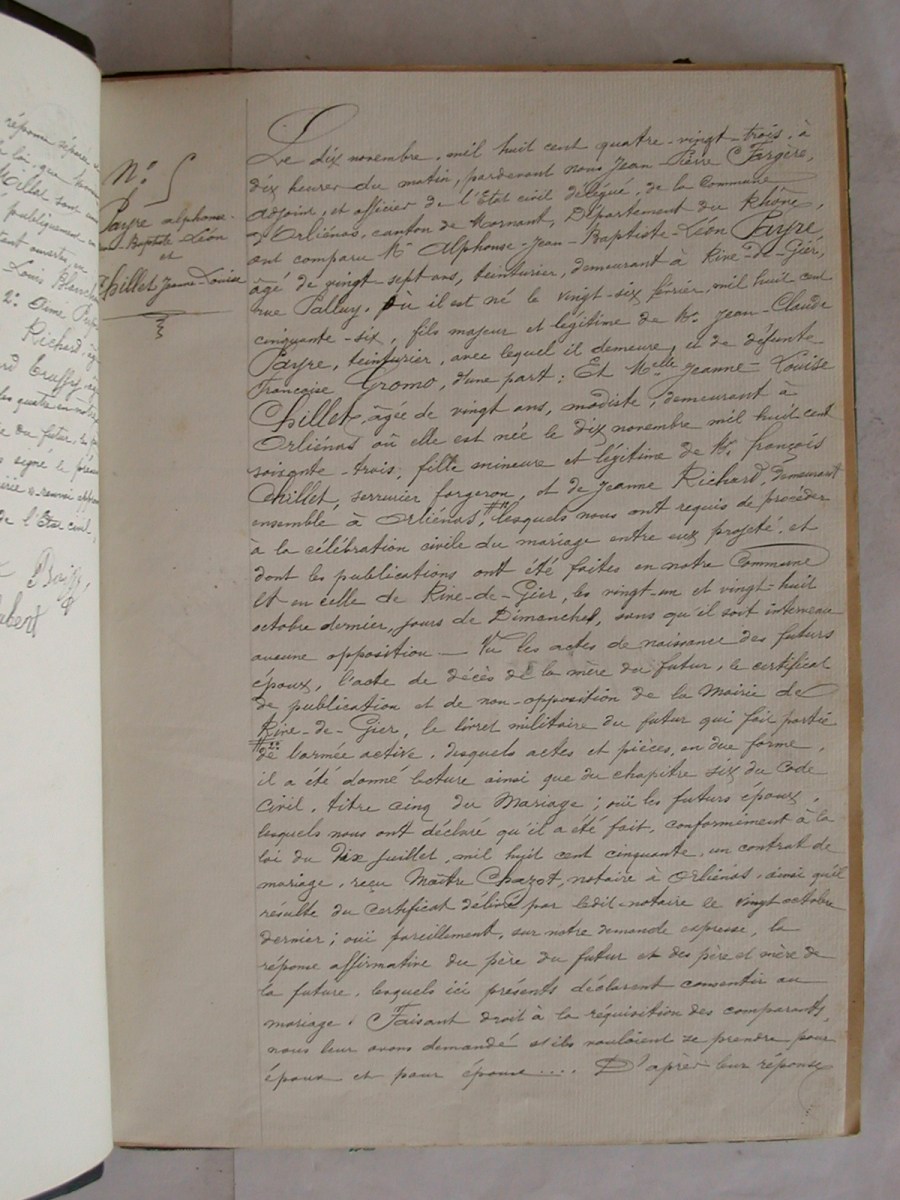 réponse séparée
la loi, que
Millet sont
publiquement
Louis Blanc
2° Aimé
Richard
Truffy
les quatre en notre
du futur, les
signé le présent
de l'Etat civil.
N° 5
Payre Alphonse-
Jean Baptiste Léon
et
Chillet Jeanne-Louise
Le dix novembre, mil huit cent quatre-vingt-trois, à
dix heures du matin, pardevant nous Jean-Pierre Fargère,
adjoint, et officier de l'Etat civil délégué, de la Commune
d'Orliénas, canton de Mornant, Département du Rhône,
ont comparu Mr Alphonse-Jean-Baptiste-Léon Payre,
âgé de vingt-sept ans, teinturier, demeurant à Rive-de-Gier,
rue Palluy, où il est né le vingt-six février, mil huit cent
cinquante-six, fils majeur et légitime de Mr Jean-Claude
Payre, teinturier, avec lequel il demeure, et de défunte
Françoise Gromo, d'une part; Et Melle Jeanne-Louise
Chillet, âgée de vingt ans, modiste, demeurant à
Orliénas où elle est née le dix novembre mil huit cent
soixante-trois, fille mineure et légitime de Mr François
Chillet, serrurier forgeron, et de Jeanne Richard, demeurant
ensemble à Orliénas, lesquels nous ont requis de procéder
à la célébration civile du mariage entre eux projeté, et
dont les publications ont été faites en notre Commune
et en celle de Rive-de-Gier, les vingt-un et vingt-huit
octobre dernier, jours de Dimanches, sans qu'il soit intervenu
aucune opposition — Vu les actes de naissance des futurs
époux, l'acte de décès de la mère du futur, le certificat
de publication et de non-opposition de la Mairie de
Rive-de-Gier, le livret militaire du futur qui fait partie
de l'armée active, desquels actes et pièces, en due forme,
il a été donné lecture ainsi que du chapitre six du Code
Civil, titre cinq du Mariage; ouï les futurs époux,
lesquels nous ont déclaré qu'il a été fait, conformément à la
loi du Dix Juillet, mil huit cent cinquante, un contrat de
mariage, reçu Maître Chazot, notaire à Orliénas, ainsi qu'il
résulte du certificat délivré par ledit notaire le vingt octobre
dernier; ouï pareillement, sur notre demande expresse, la
réponse affirmative du père du futur et des père et mère de
la future, lesquels ici présents déclarent consentir au
mariage. Faisant droit à la réquisition des comparants,
nous leur avons demandé s'ils voulaient se prendre pour
époux et pour épouse .... D'après leur réponse